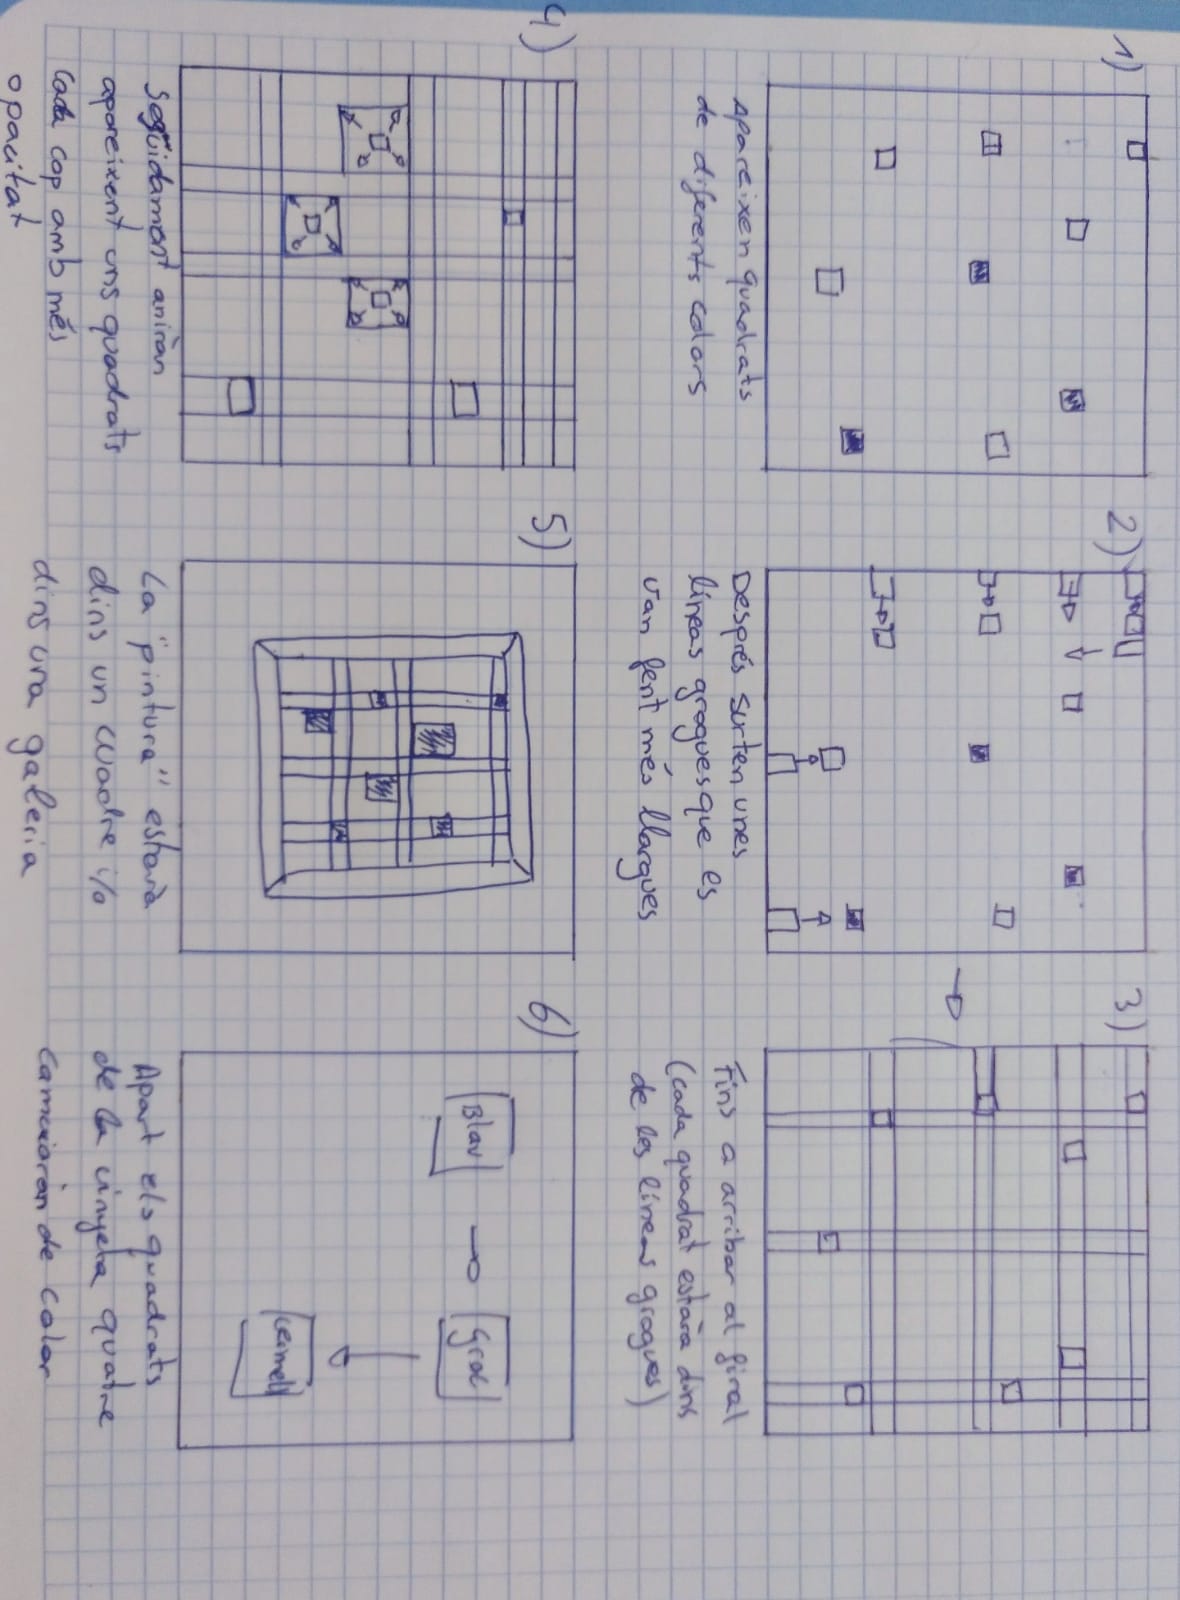 1)
Apareixen quadrats
de diferents colors
2)
Després surten unes
líneas grogues que es
van fent més llargues
3)
Fins a arribar al final
(cada quadrat estarà dins
de les líneas grogues)
4)
Seguidament aniran
apareixent uns quadrats
Cada cop amb més
opacitat
5)
La "pintura" estarà
dins un cuadre i/o
dins una galeria
6)
Blau
Groc
Vermell
Apart els quadrats
de la vinyeta quatre
Canviaràn de color